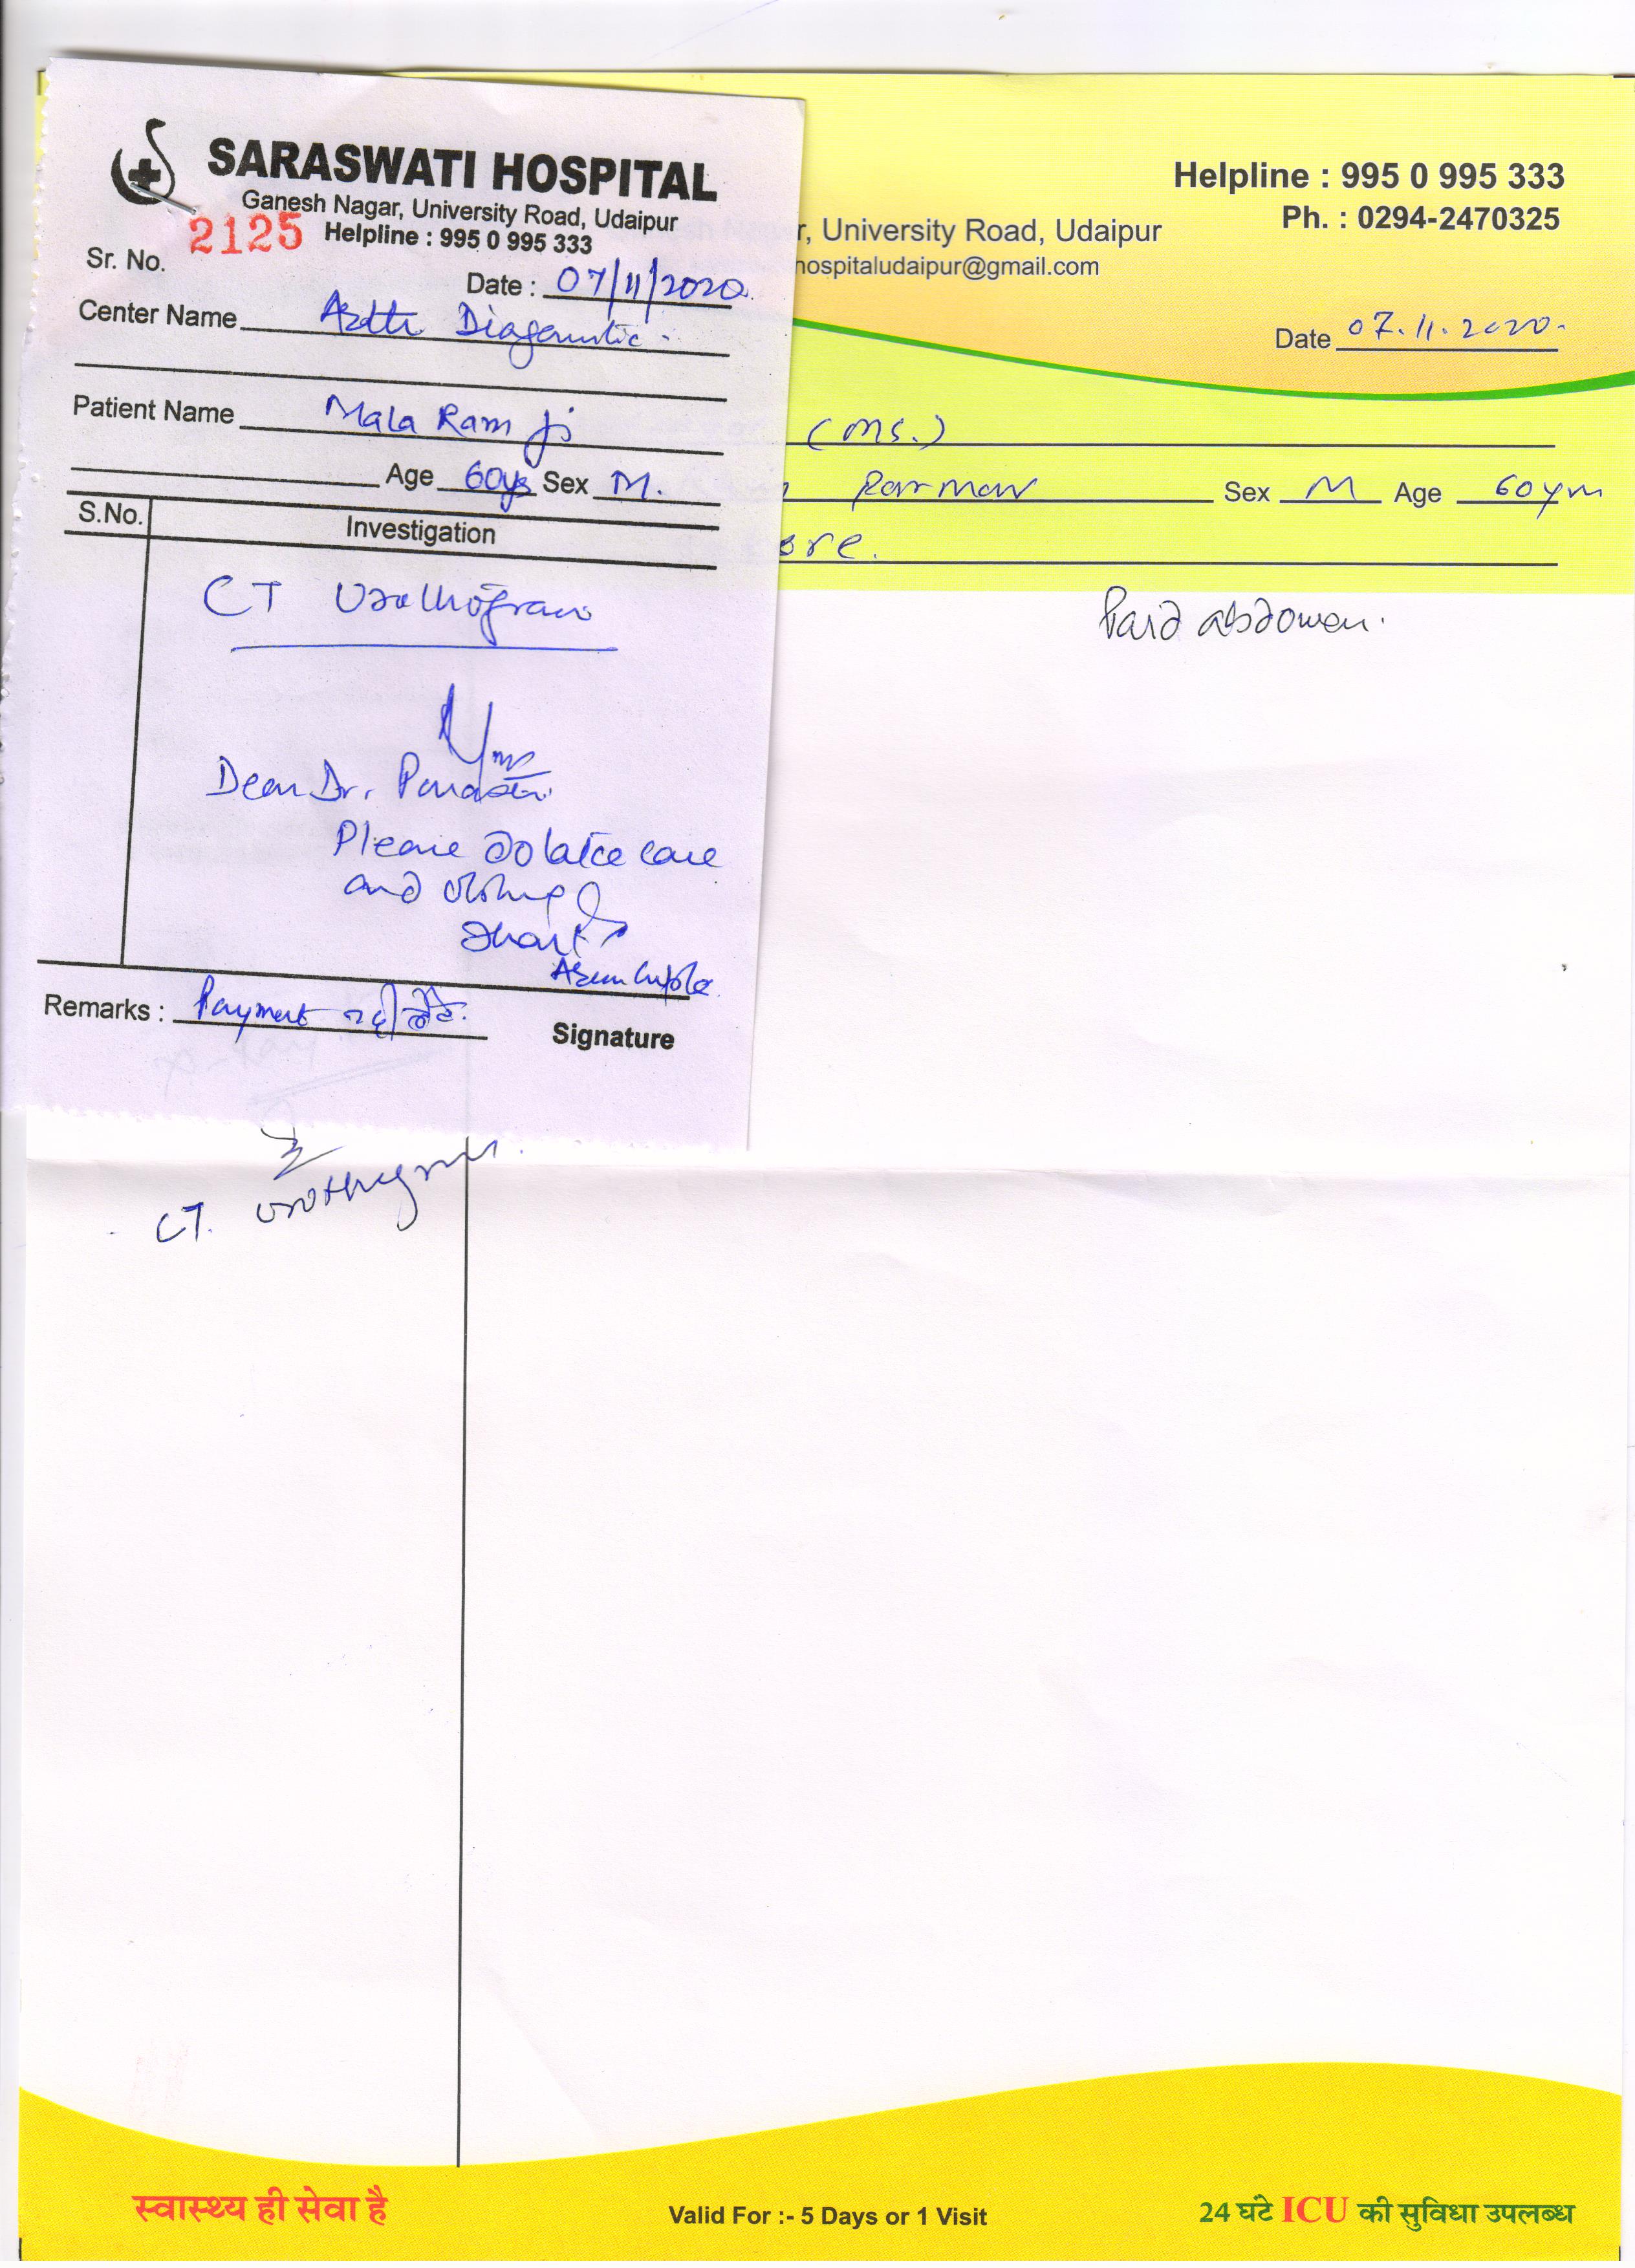 SARASWATI HOSPITAL
Ganesh Nagar, University Road, Udaipur
Helpline : 995 0 995 333
Sr. No. 2125
Date : 07/11/2020
Center Name Diagnostic
Patient Name Mala Ram Ji
Age 60ys Sex M.
S.No. Investigation
CT Urethrogram
Dear Dr.
Please do take care
and
Arun Gupta
Remarks : Payment नहीं
Signature
Helpline : 995 0 995 333
Ph. : 0294-2470325
r, University Road, Udaipur
hospitaludaipur@gmail.com
Date 07.11.2020.
(MS.)
Parmar Sex M Age 60 yrs
ore.
Pain abdomen.
CT. urethrogram.
स्वास्थ्य ही सेवा है
Valid For :- 5 Days or 1 Visit
24 घंटे ICU की सुविधा उपलब्ध